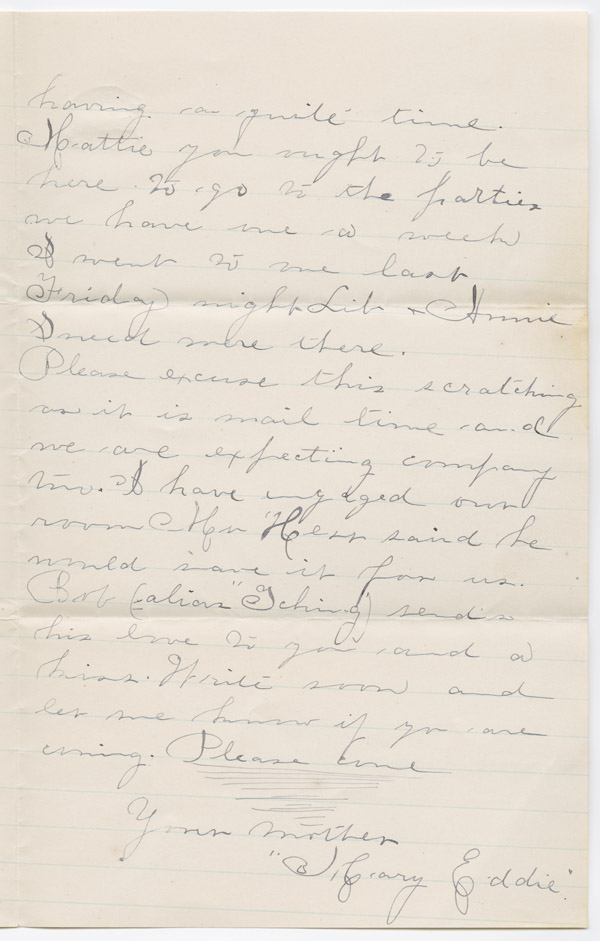 having a quite time.
Mattie you ought to be
here to go to the parties
we have one a week
I went to one last
Friday night Lib & Annie
Sneed were there.
Please excuse this scratching
as it is mail time and
we are expecting company
too. I have engaged our
room Mr Hess said he
would save it for us.
Bob (alias "Tching) sends
his love to you and a
kiss. Write soon and
let me know if you are
coming. Please come
Your mother
"Mary Eddie".